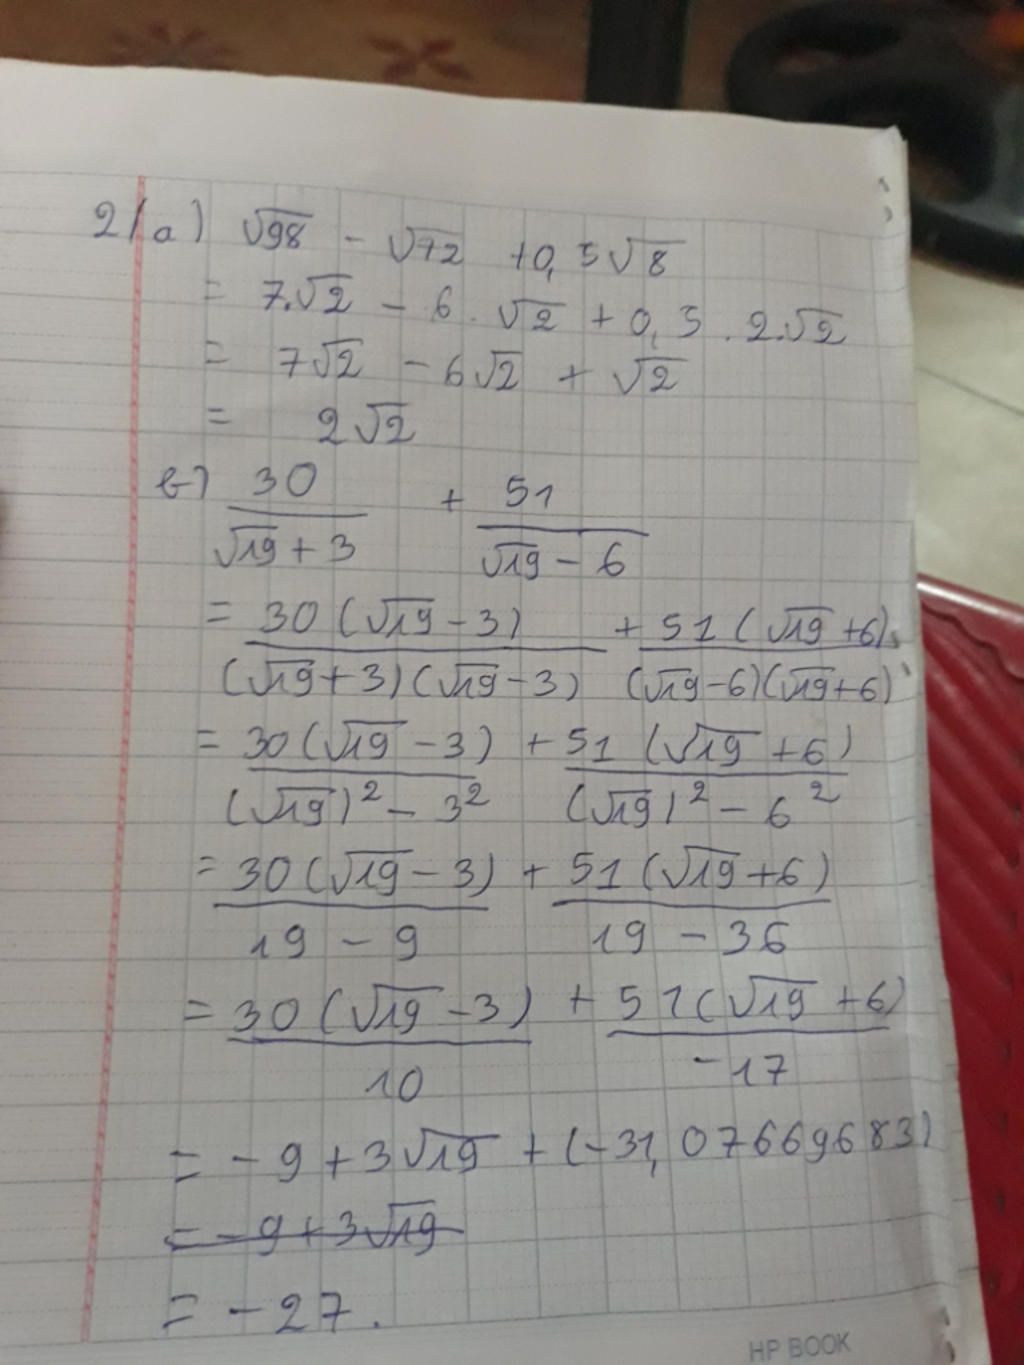 2/a) √98 - √72 + 0,5√8
= 7.√2 - 6.√2 + 0,5.2.√2
= 7√2 - 6√2 + √2
= 2√2
b) 30/(√19 + 3) + 51/(√19 - 6)
= 30(√19 - 3)/(√19 + 3)(√19 - 3) + 51(√19 + 6)/(√19 - 6)(√19 + 6)
= 30(√19 - 3)/(√19)² - 3² + 51(√19 + 6)/(√19)² - 6²
= 30(√19 - 3)/19 - 9 + 51(√19 + 6)/19 - 36
= 30(√19 - 3)/10 + 51(√19 + 6)/-17
= -9 + 3√19 + (-31,07669683)
= -9 + 3√19
= -27.
HP BOOK